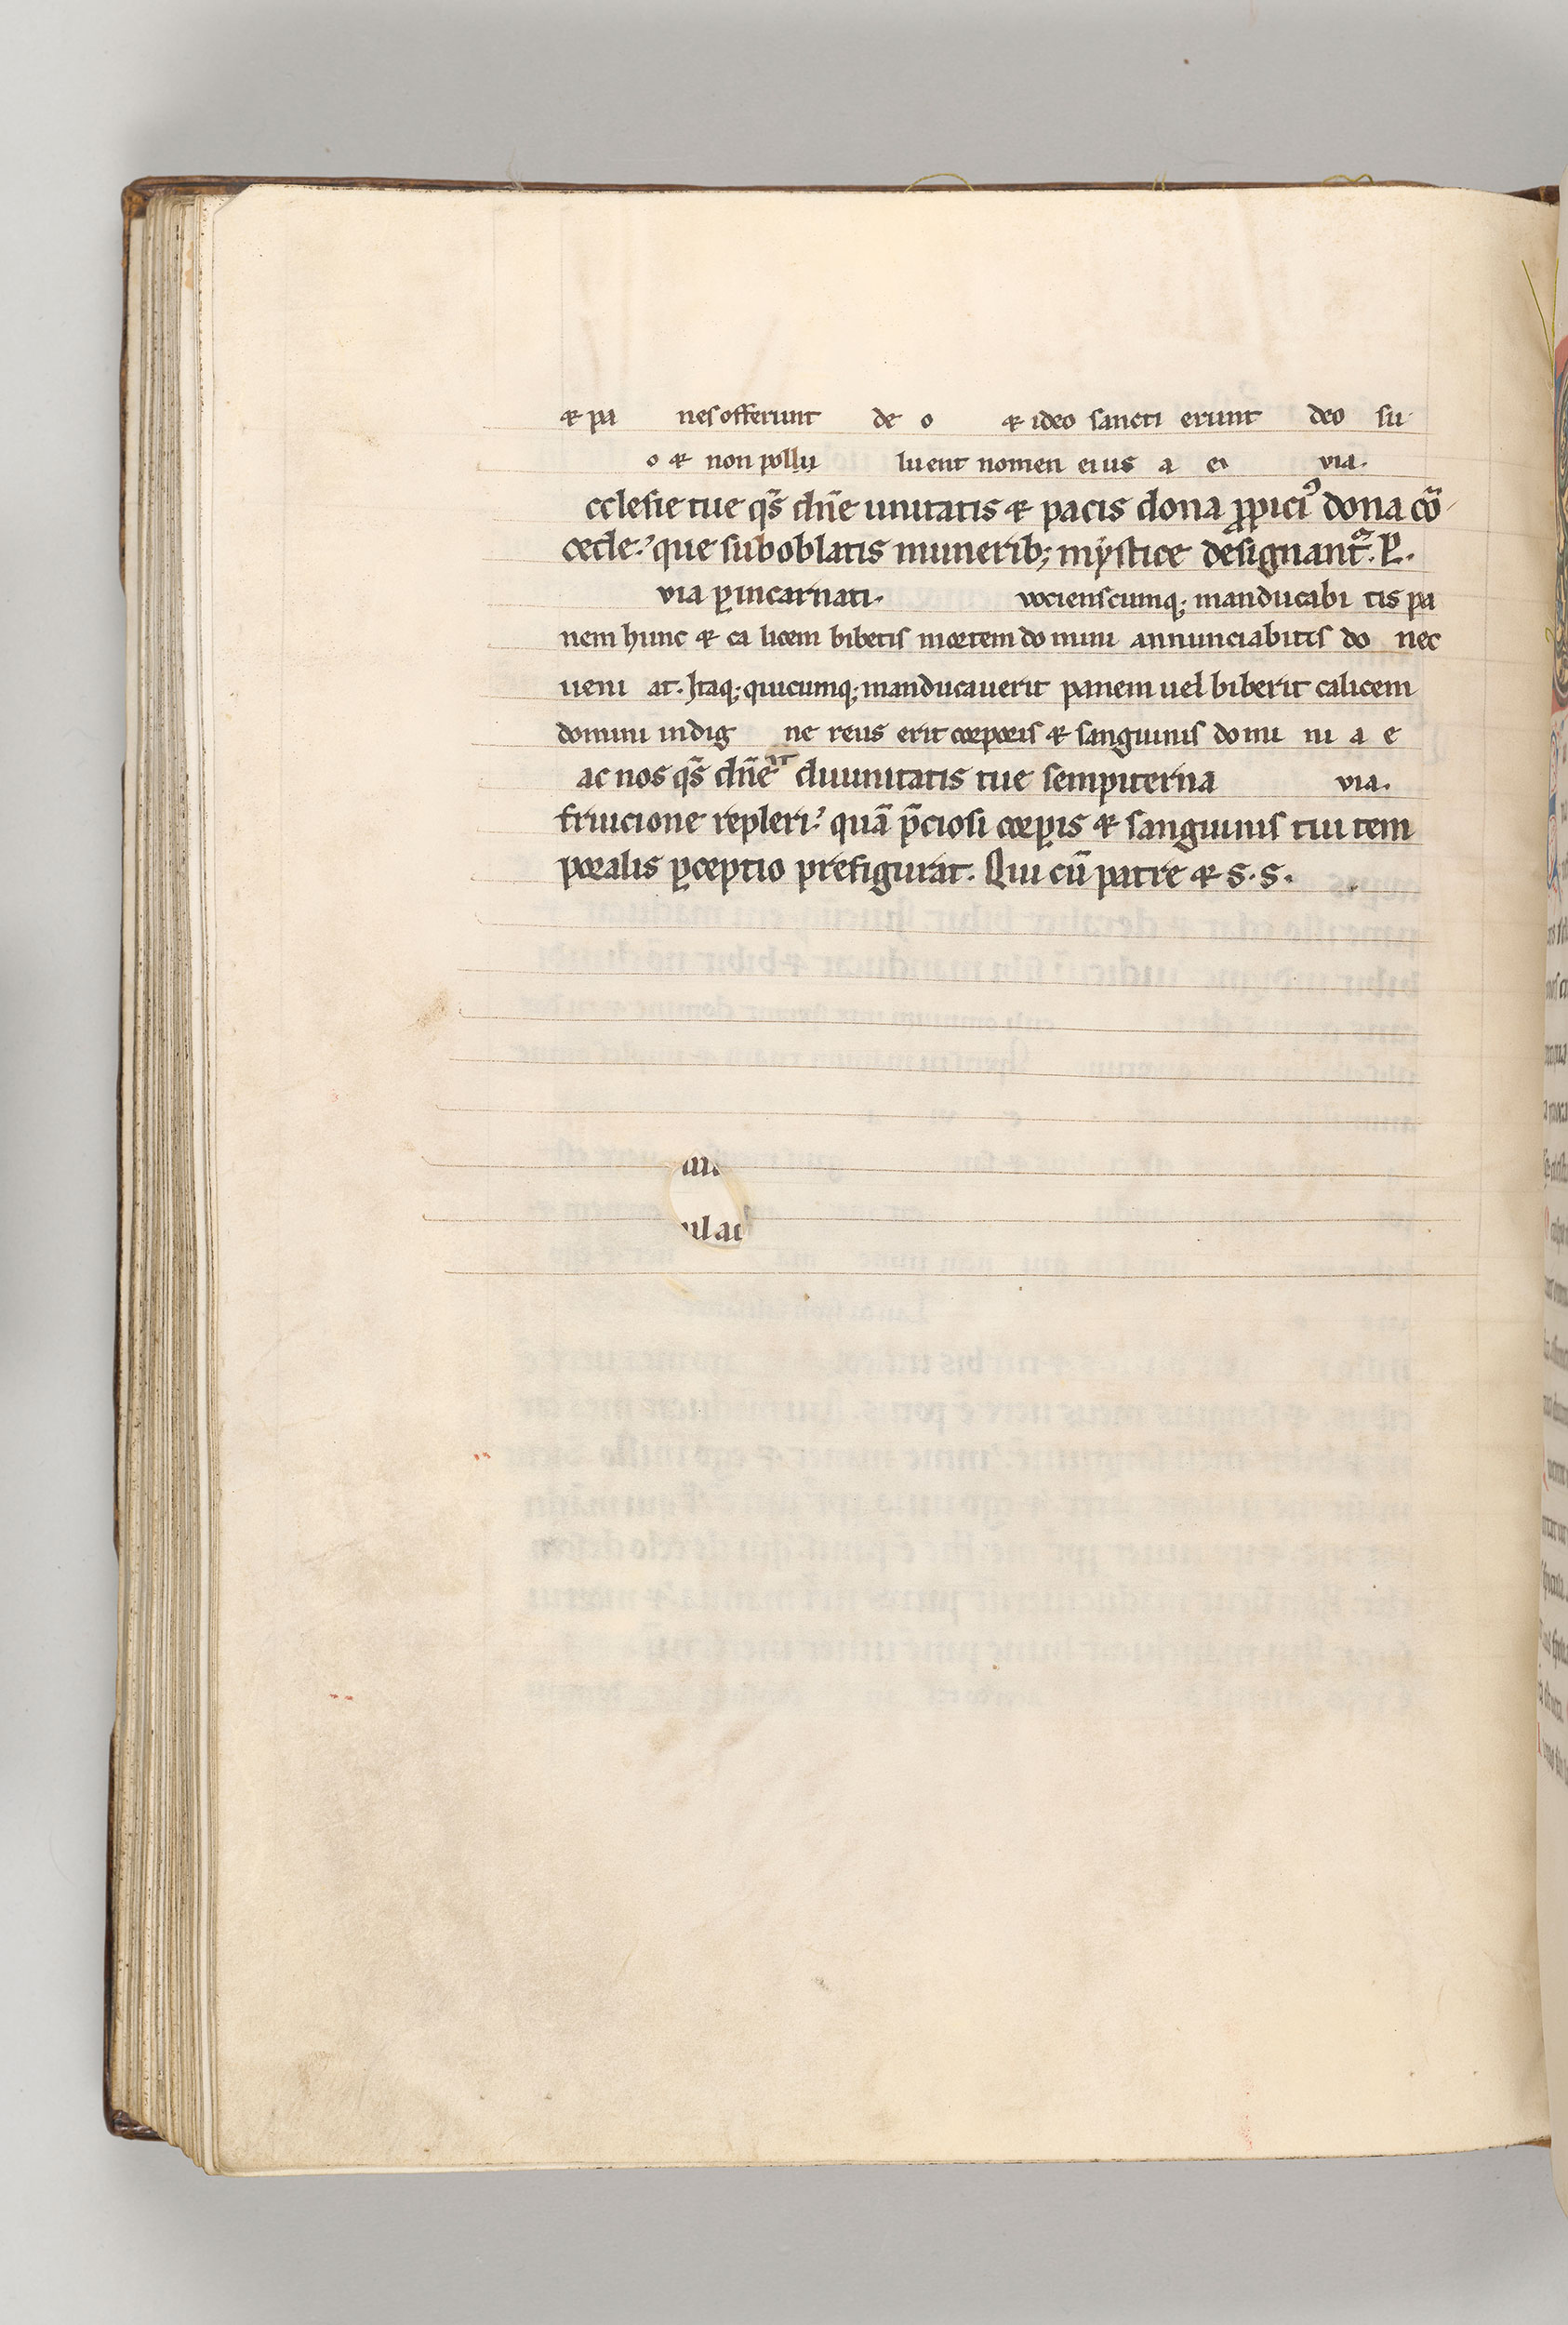 ⁊ pa nes offerunt de o ⁊ ideo sancti erunt deo su
o ⁊ non pollu luent nomen eius a e via.
cclesie tue qs̄ dn̄e unitatis ⁊ pacis dona ꝓpiciꝰ dona cō
cede: que sub oblatis munerib; mẏstice designantᷣ. P.
via ꝑ incarnati. vocienscumq; manducabi tis pa
nem hunc ⁊ ca licem bibetis mortem do mini annunciabitis do nec
ueni at. Itaq; quicumq; manducauerit panem uel biberit calicem
domini indig ne reus erit corporis ⁊ sanguinis do mi ni a e
ac nos qs̄ dn̄e diuinitatis tue sempiterna via.
fruicione repleri: quā p̄ciosi corꝑis ⁊ sanguinis tui tem
poralis ꝑceptio prefigurat. Qui cū patre ⁊ s. s.